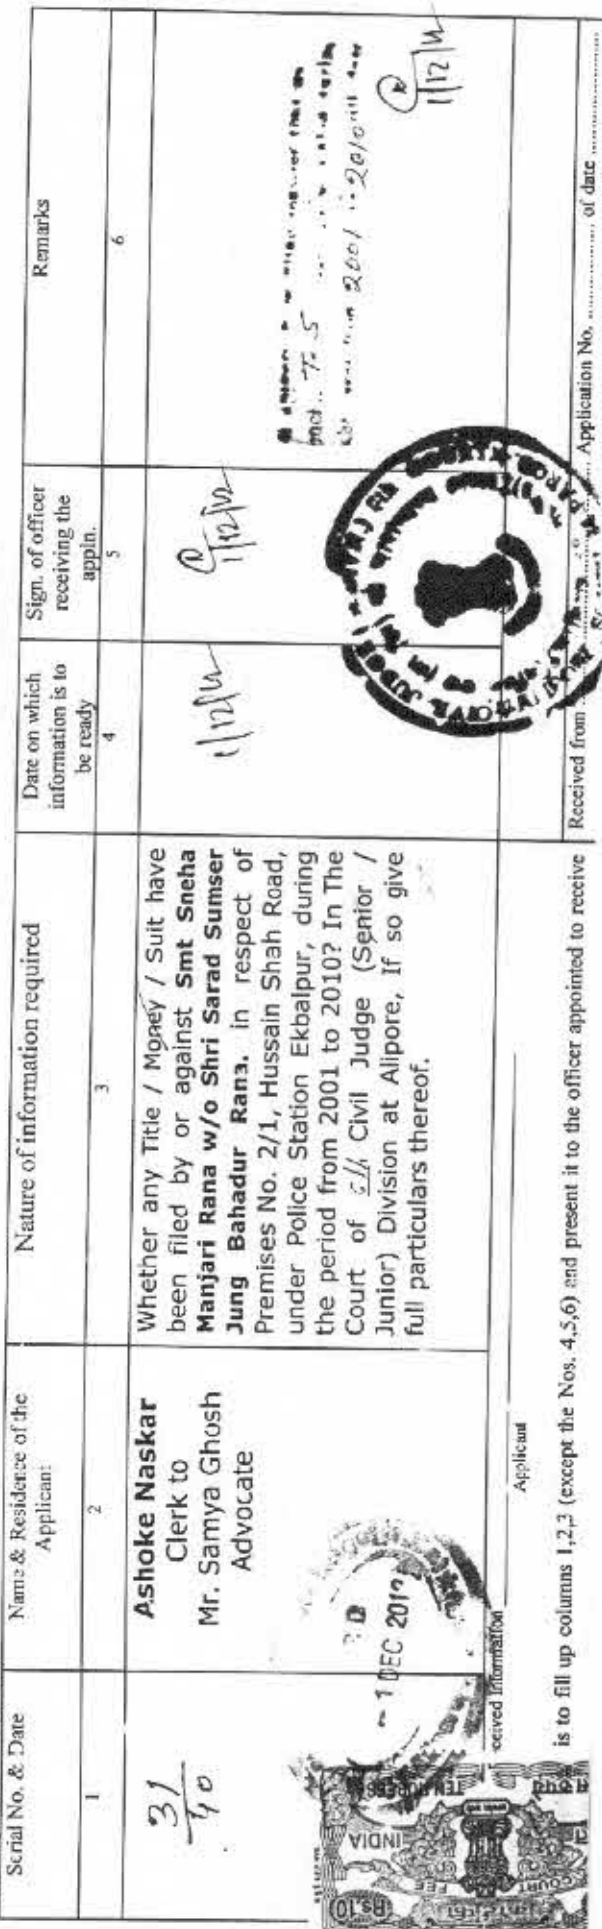 Serial No. & Date
Name & Residence of the
Applicant
Nature of information required
Date on which
information is to
be ready
Sign. of officer
receiving the
appln.
Remarks
1
2
3
4
5
6
31/40
Ashoke Naskar
Clerk to
Mr. Samya Ghosh
Advocate
Whether any Title / Money / Suit have
been filed by or against Smt Sneha
Manjari Rana w/o Shri Sarad Sumser
Jung Bahadur Rana. in respect of
Premises No. 2/1, Hussain Shah Road,
under Police Station Ekbalpur, during
the period from 2001 to 2010? In The
Court of Civil Judge (Senior /
Junior) Division at Alipore, If so give
full particulars thereof.
1/12/12
1/12/12
T. S
2001 2010
1/12/12
- 1 DEC 2012
Rs.10
INDIA
COURT
FEE
TEN RUPEES
CIVIL JUDGE
ceived Information
Applicant
is to fill up columns 1,2,3 (except the Nos. 4,5,6) and present it to the officer appointed to receive
Received from Application No. of date